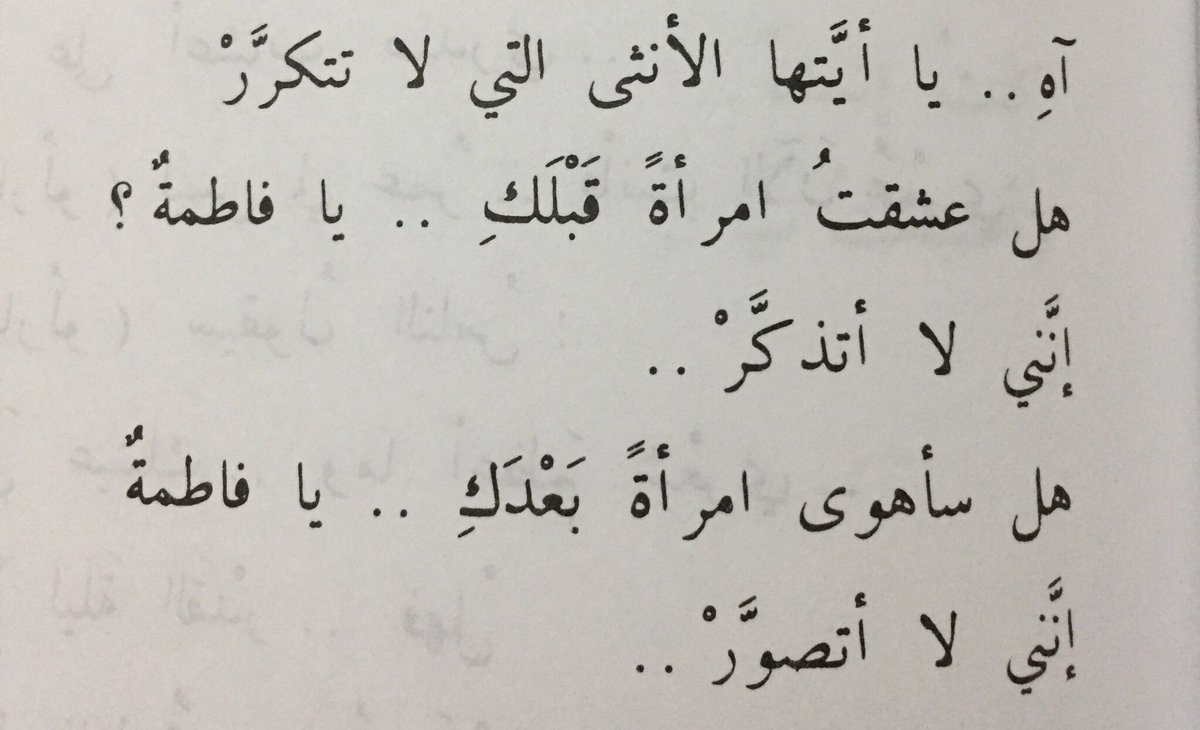 آهِ .. يا أيَّتها الأنثى التي لا تتكرَّرْ
هل عشقتُ امرأةً قَبْلَكِ .. يا فاطمةٌ ؟
إنَّني لا أتذكَّرْ ..
هل سأهوى امرأةً بَعْدَكِ .. يا فاطمةٌ
إنَّني لا أتصوَّرْ ..